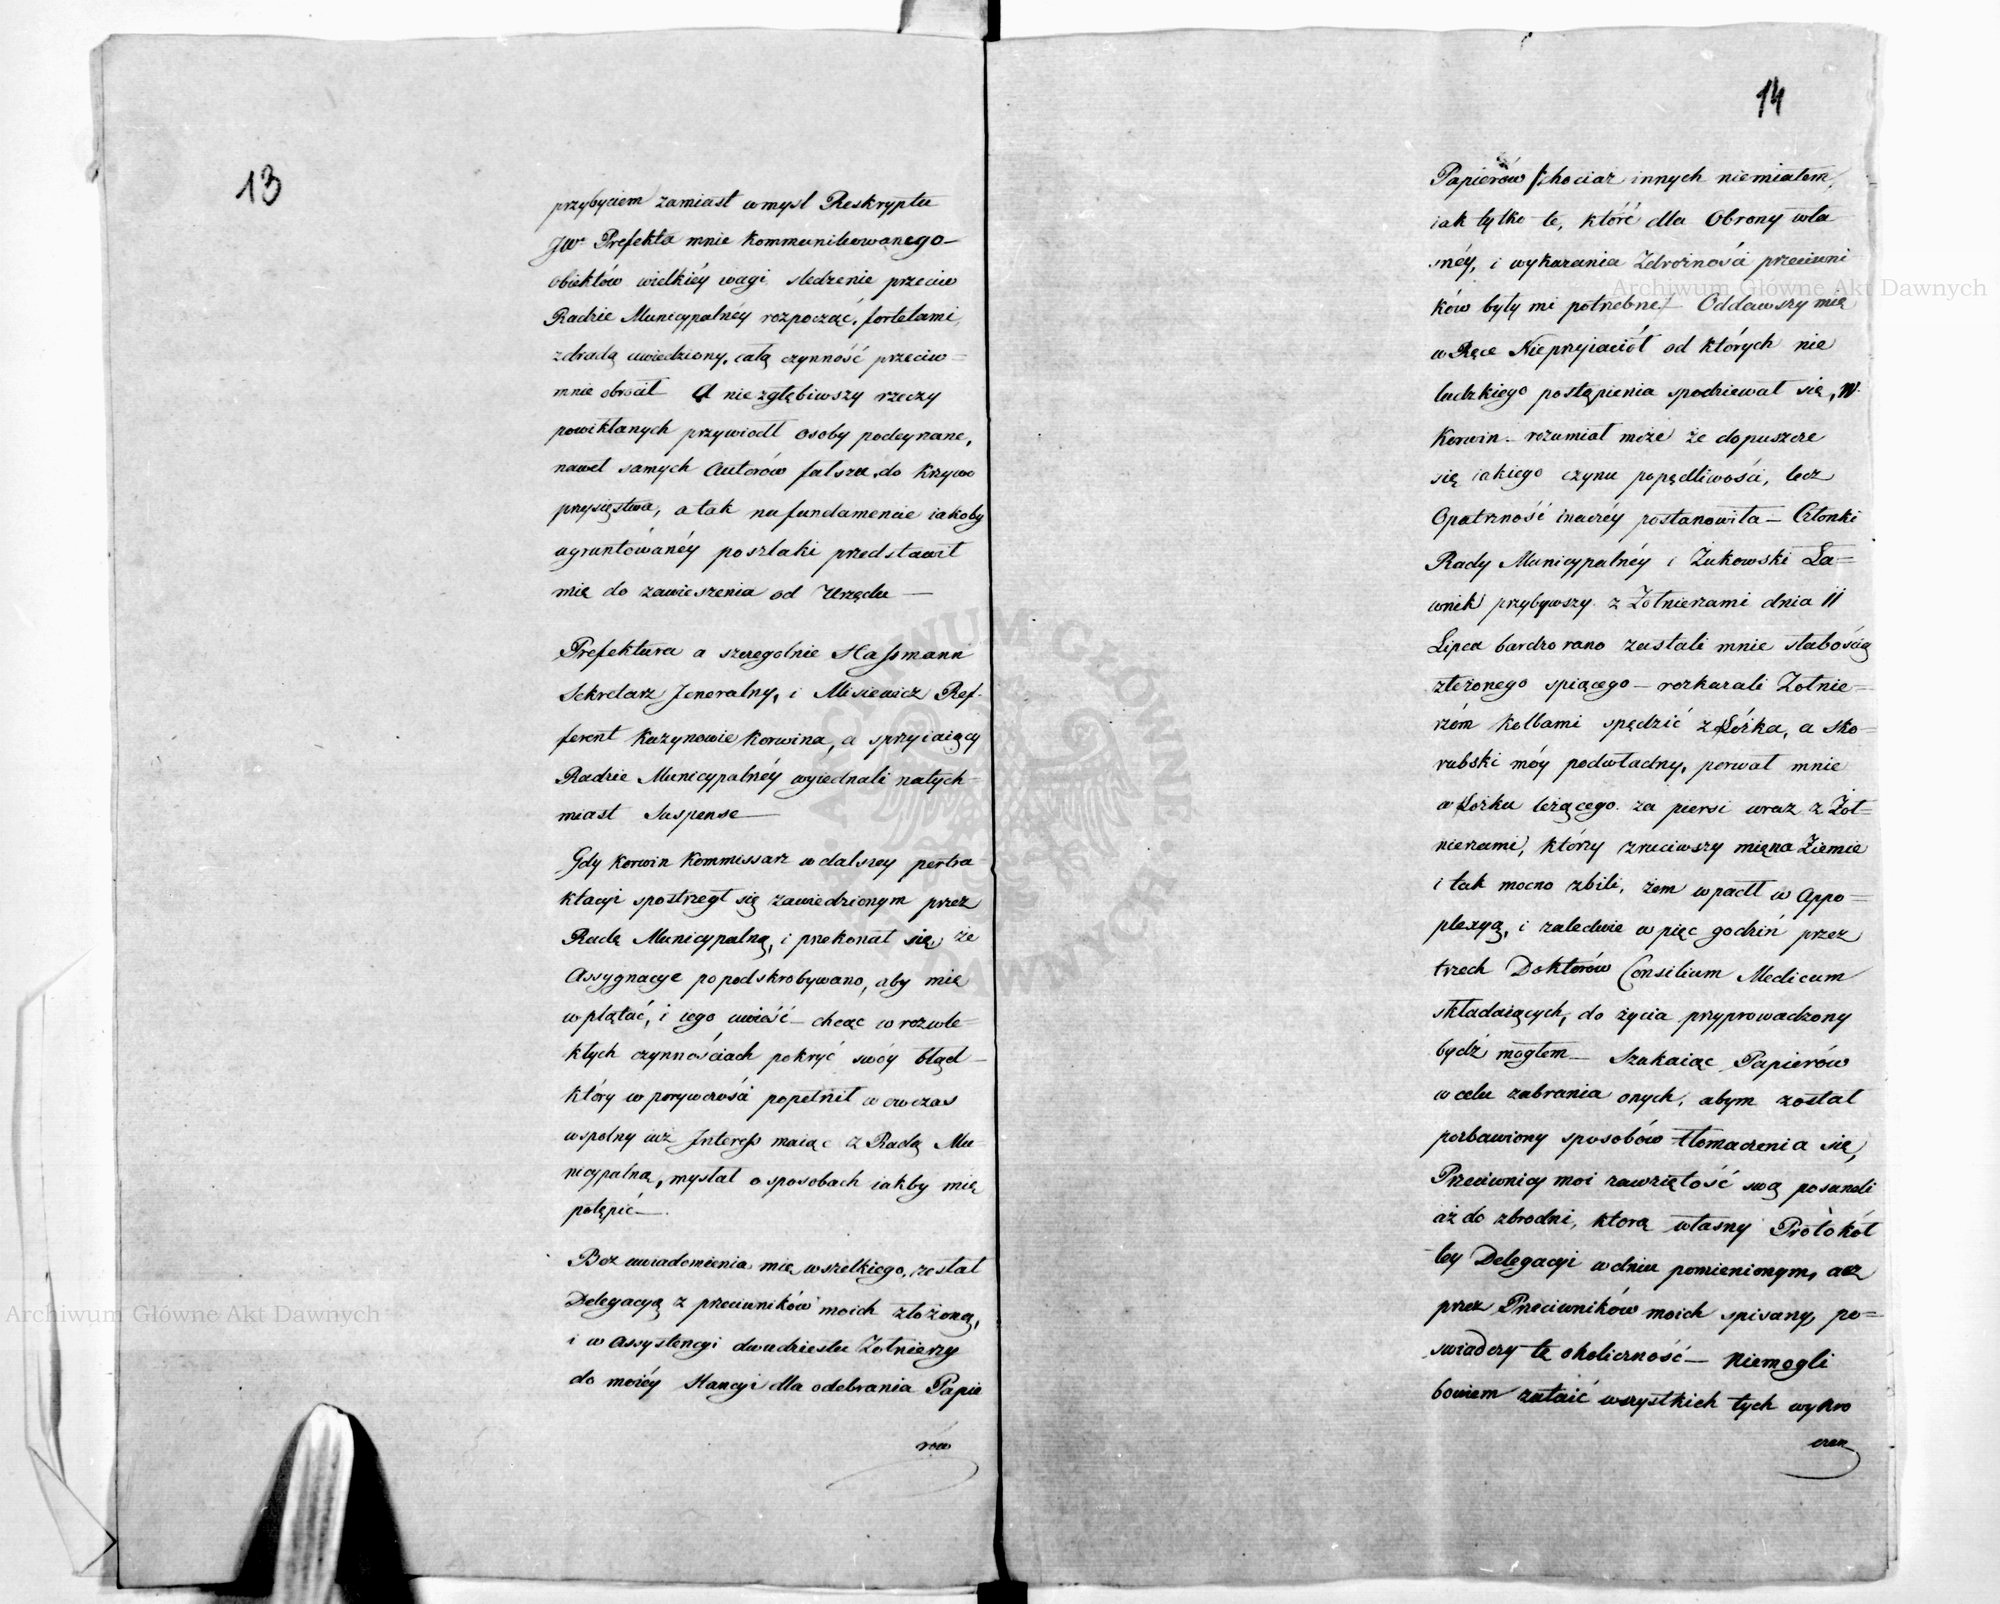 13
przybyciem zamiast w mysl Reskryptu
JWo Prefekta mnie kommunikowanego
obiektów wielkiéy wagi sledzenie przeciw
Radzie Municypalnéy rozpocząć, fortelami,
zdradą uwiedziony, całą czynność przeciw=
mnie obrócił A niezgłębiwszy rzeczy
powikłanych przywiodł osoby podeyrzane,
nawet samych Autorów falszu do krzywo
przysięstwa, a tak na fundamencie iakoby
ugruntowanéy poszlaki przedstawił
mię do zawieszenia od Urzędu —
Prefektura a szczegolnie Hassmann
Sekretarz Jeneralny, i Misiewicz Ref-
ferent Kuzynowie Korwina, a sprzyiaiący
Radzie Municypalnéy wyiednali natych
miast Suspense —
Gdy Korwin Kommissarz w dalszey pertra
ktacyi spostrzegł się zawiedzionym przez
Radę Municypalną, i przekonał się, że
Assygnacye popodskrobywano, aby mię
wplątać, i iego uwieść — chcąc w rozwle=
kłych czynnościach pokryć swóy błąd —
który w porywczości popełnił wowczas
wspolny iuż Interess maiąc z Radą Mu
nicypalną, myslał o sposobach iakby mię
potępić —
Bez uwiadomienia mię wszelkiego, zesłał
Delegacyą z przeciwników moich złożoną,
i w Assystencyi dwudziestu Żołnierzy
do moiéy Stancyi dla odebrania Papie
rów
14
Papierów /:chociaż innych niemiałem,
iak tylko te, które dla Obrony wła
snéy, i wykazania Zdrożności przeciwni
ków były mi potrzebne/— Oddawszy mię
w Ręce Nieprzyiaciół od których nie
ludzkiego postąpienia spodziewał się, W.
Korwin — rozumiał może że dopuszcze
się iakiego czynu popędliwości, lecz
Opatrzność inaczéy postanowiła — Członki
Rady Municypalnéy i Żukowski Ła=
wnik przybywszy z Żołnierzami dnia 11
Lipca bardzo rano zastali mnie słabością
złożonego spiącego — rozkazali Żołnie=
rzom kolbami spędzić z Łóżka, a Sko=
rubski móy podwładny, porwał mnie
w Łóżku leżącego za piersi wraz z Żoł=
nierzami, którzy zruciwszy mię na Ziemie
i tak mocno zbili, żem wpadł w Appo=
plexyą, i zaledwie w pięc godzin przez
trzech Doktorów Consilium Medicum
składaiących, do życia przyprowadzony
bydź mogłem — Szukaiąc Papierów
w celu zabrania onych, abym został
pozbawiony sposobów tłomaczenia się,
Przeciwnicy moi zawziętość swą posuneli
aż do zbrodni, ktorą własny Protokół
tey Delegacyi w dniu pomienionym, acz
przez Przeciwników moich spisany, po=
swiadczy tę okoliczność — Niemogli
bowiem zataić wszystkich tych wykro
czen
Archiwum Główne Akt Dawnych
Archiwum Główne Akt Dawnych
ARCHIWUM GŁÓWNE AKT DAWNYCH